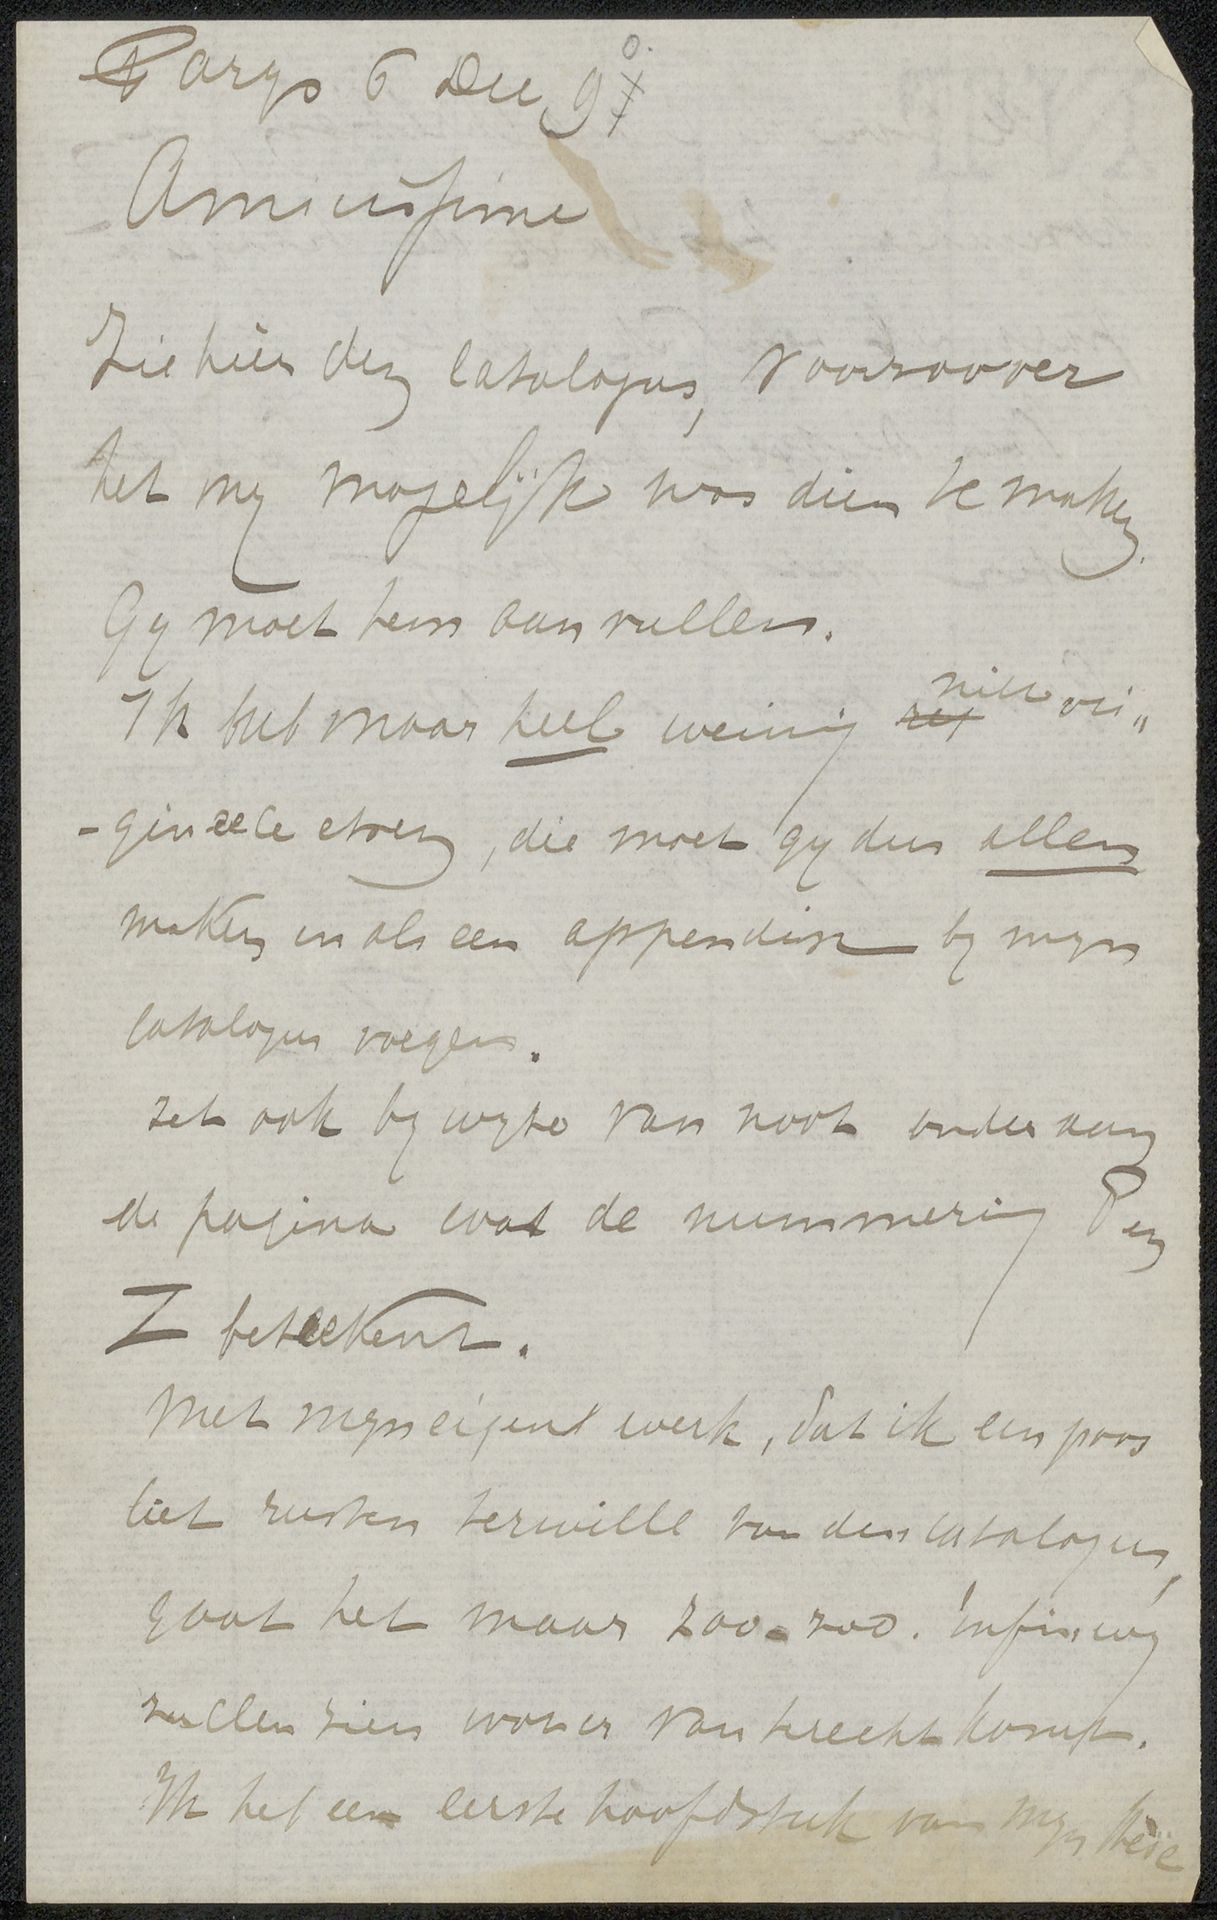 Parys 6 Dec 90.
Amicissime
Ziehier den catalogus, voorzoover
het my mogelijk was dien te maken.
Gy moet hem aanvullen.
Ik heb maar heel weinig niet ori„
-gineele etsen, die moet gy dus allen
maken en als een appendix by myn
catalogus voegen.
Zet ook by wyze van noot onder aan
de pagina wat de nummering P en
Z beteekent.
Met myn eigen werk, dat ik een poos
liet rusten terwille van den catalogus,
gaat het maar zoo-zoo. Enfin, wy
zullen zien wat er van terecht komt.
Ik heb een eerste hoofdstuk van myn